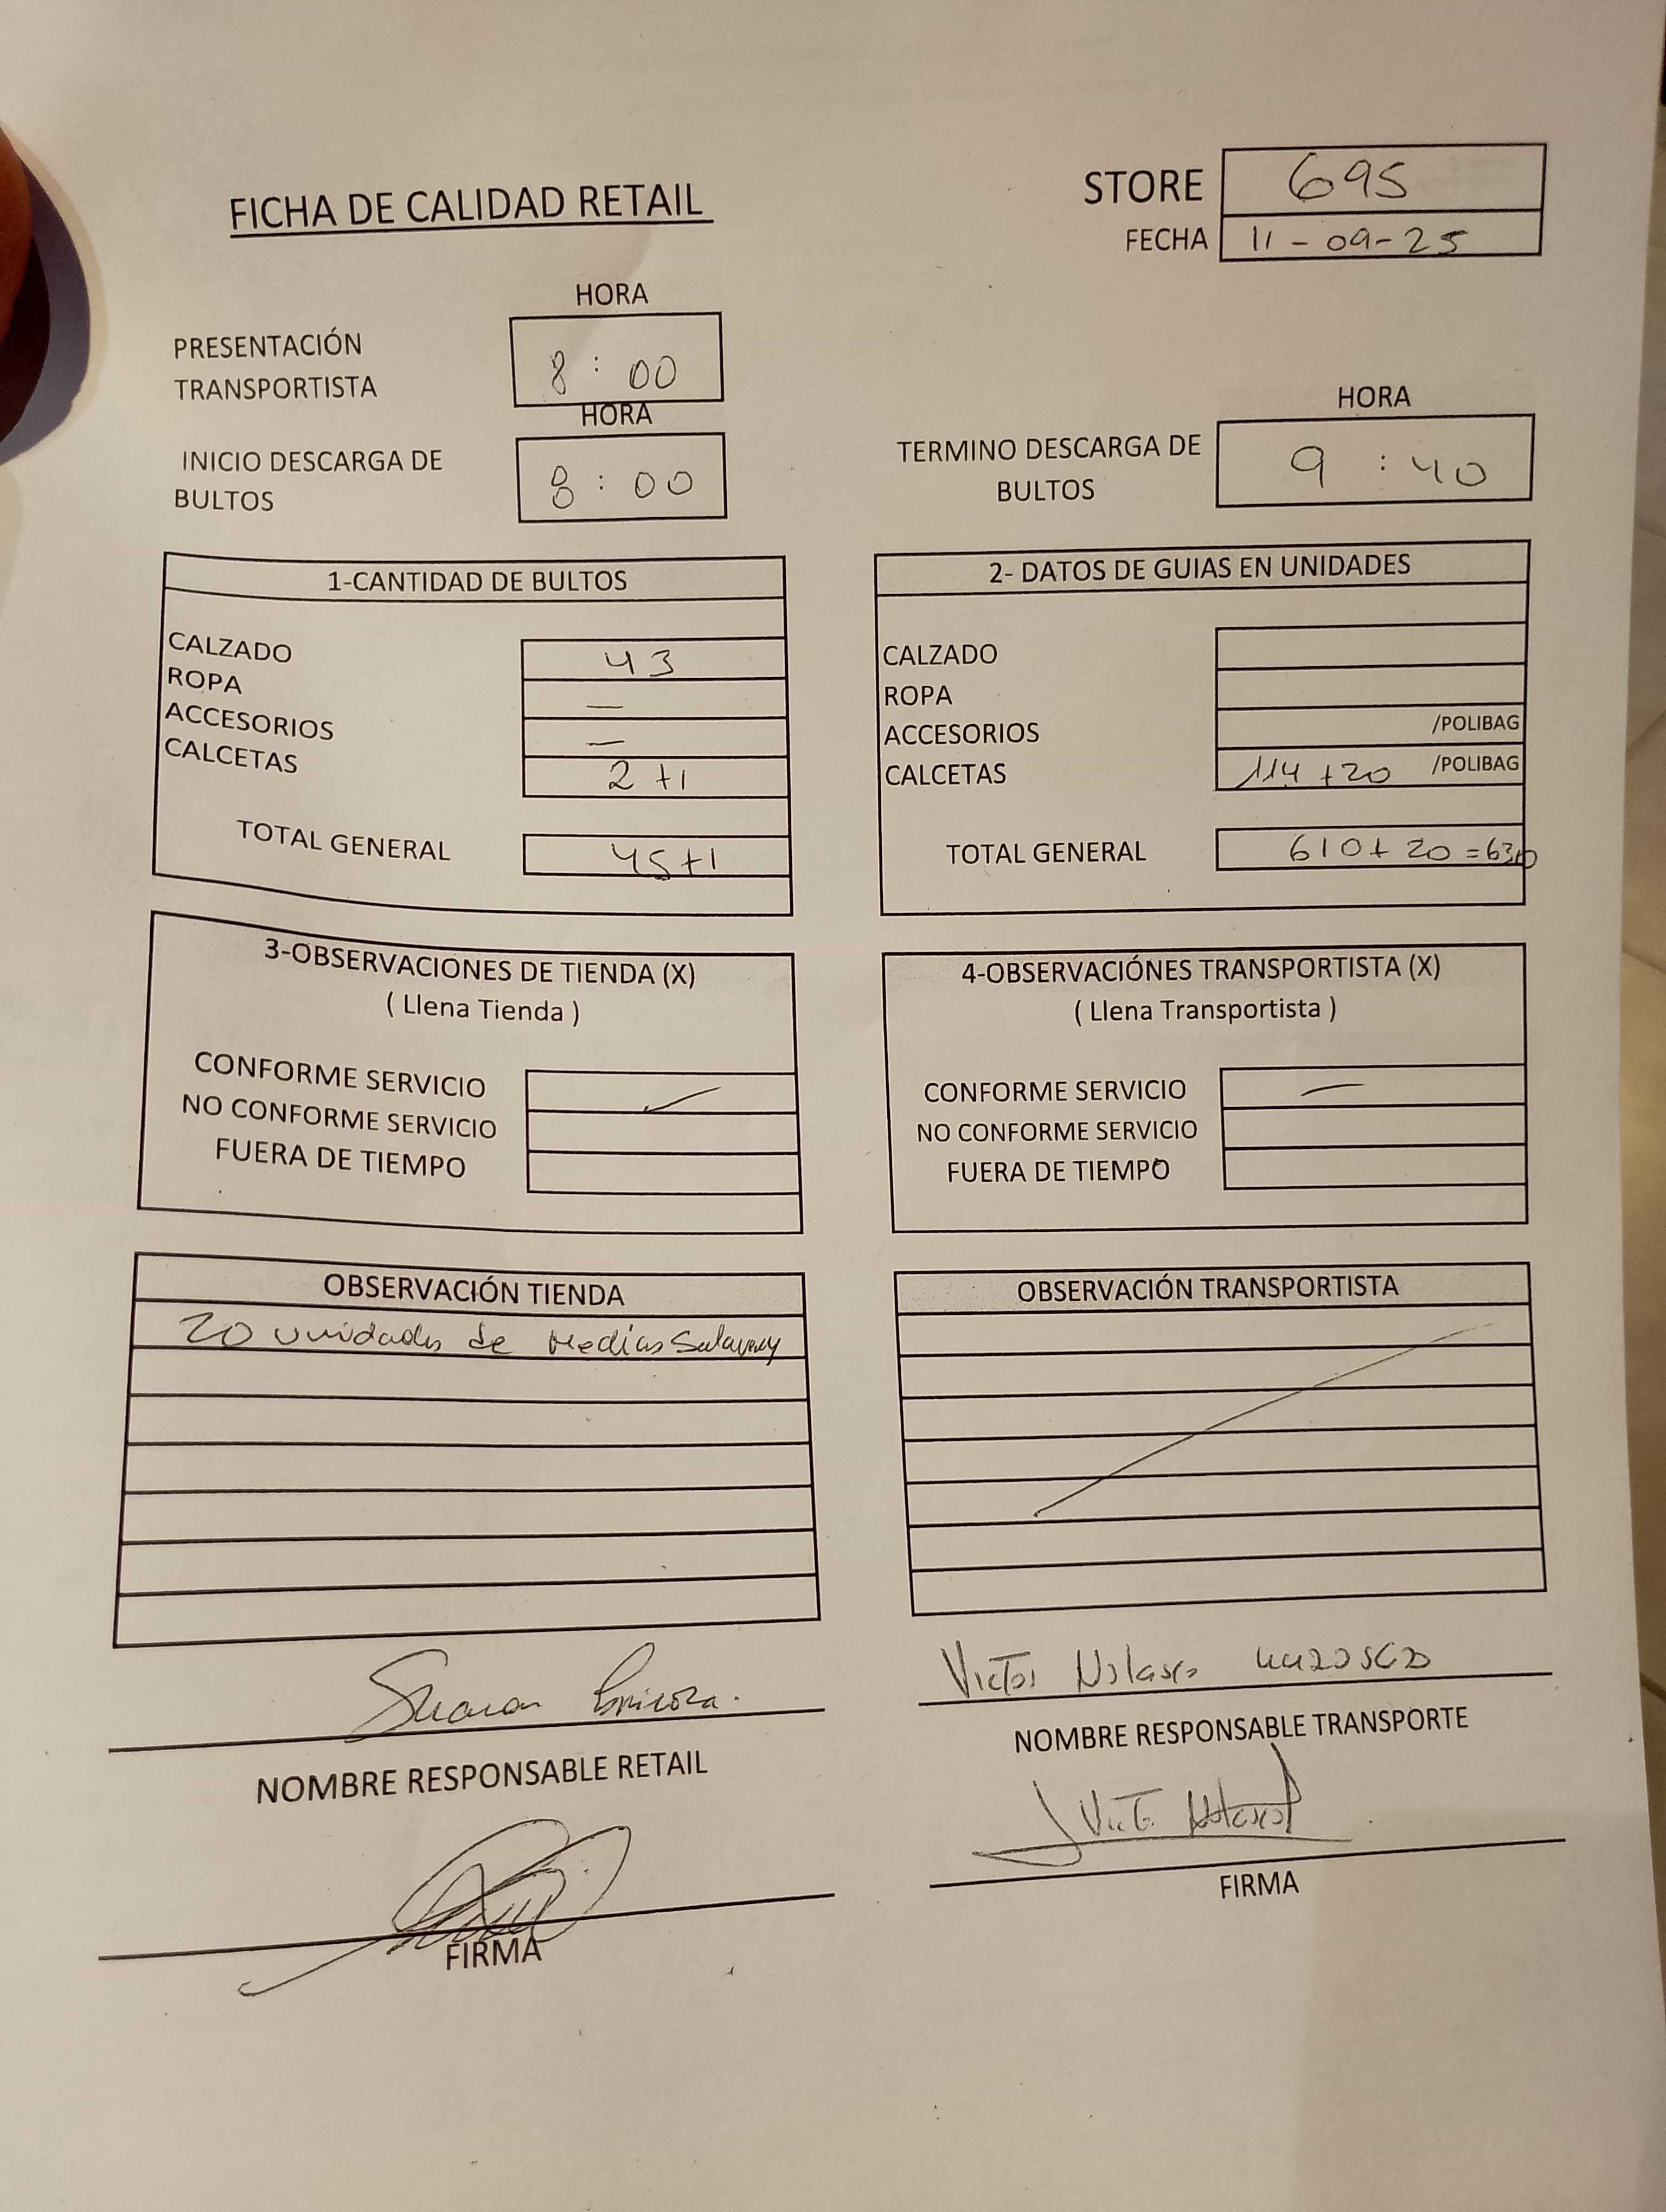 FICHA DE CALIDAD RETAIL
STORE 695
FECHA 11-09-25
HORA
PRESENTACIÓN
TRANSPORTISTA
8 : 00
HORA
INICIO DESCARGA DE
BULTOS
8 : 00
HORA
TERMINO DESCARGA DE
BULTOS
9 : 40
1-CANTIDAD DE BULTOS
CALZADO 43
ROPA —
ACCESORIOS —
CALCETAS 2+1
TOTAL GENERAL 45+1
2- DATOS DE GUIAS EN UNIDADES
CALZADO
ROPA
ACCESORIOS /POLIBAG
CALCETAS 114+20 /POLIBAG
TOTAL GENERAL 610+20=630
3-OBSERVACIONES DE TIENDA (X)
( Llena Tienda )
CONFORME SERVICIO
NO CONFORME SERVICIO
FUERA DE TIEMPO
4-OBSERVACIÓNES TRANSPORTISTA (X)
( Llena Transportista )
CONFORME SERVICIO —
NO CONFORME SERVICIO
FUERA DE TIEMPO
OBSERVACIÓN TIENDA
20 unidades de Medias
OBSERVACIÓN TRANSPORTISTA
NOMBRE RESPONSABLE RETAIL
FIRMA
Victor Nolasco
NOMBRE RESPONSABLE TRANSPORTE
FIRMA